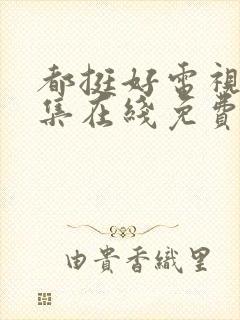 都挺好電視
集在綫免費
由貴香織里